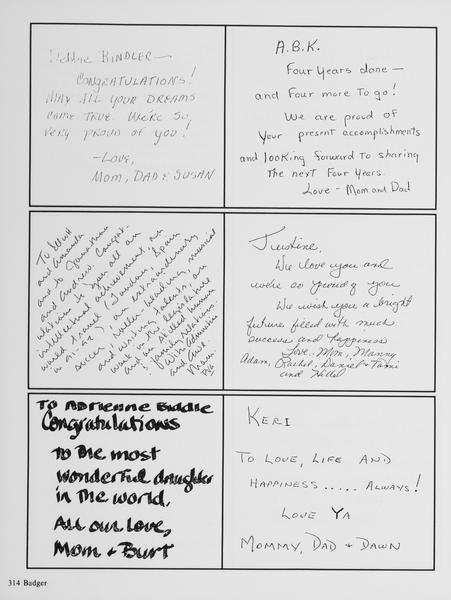 Debbie BINDLER—
CONGRATULATIONS!
MAY ALL YOUR DREAMS
COME TRUE. WE'RE SO
VERY PROUD OF YOU!
—LOVE,
MOM, DAD & SUSAN
A.B.K.
Four Years done—
and Four more To go!
We are proud of
Your present accomplishments
and looking forward To sharing
The next Four Years.
Love - Mom and Dad
To
and Amanda
and to Jonathan
and Andrew. Congrat-
ulations to you all on
intellectual achievement, on
world travel (London, Spain
soccer, roller-blading, musical
and writing talents, on
work in the legislature
and on skilled human
& family relations.
With admiration
and love.
Nana
Justine,
We love you and
we're so proud of you
We wish you a bright
future filled with much
success and happiness
Love - Mom, Manny
Adam, Rachel, Daniel + Tami
and Hillel
To ADRIENNE Biddle
Congratulations
To The most
wonderful daughter
in The world.
All our Love,
Mom + Burt
KERI
TO LOVE, LIFE AND
HAPPINESS ..... ALWAYS!
LOVE YA
MOMMY, DAD + DAWN
314 Badger